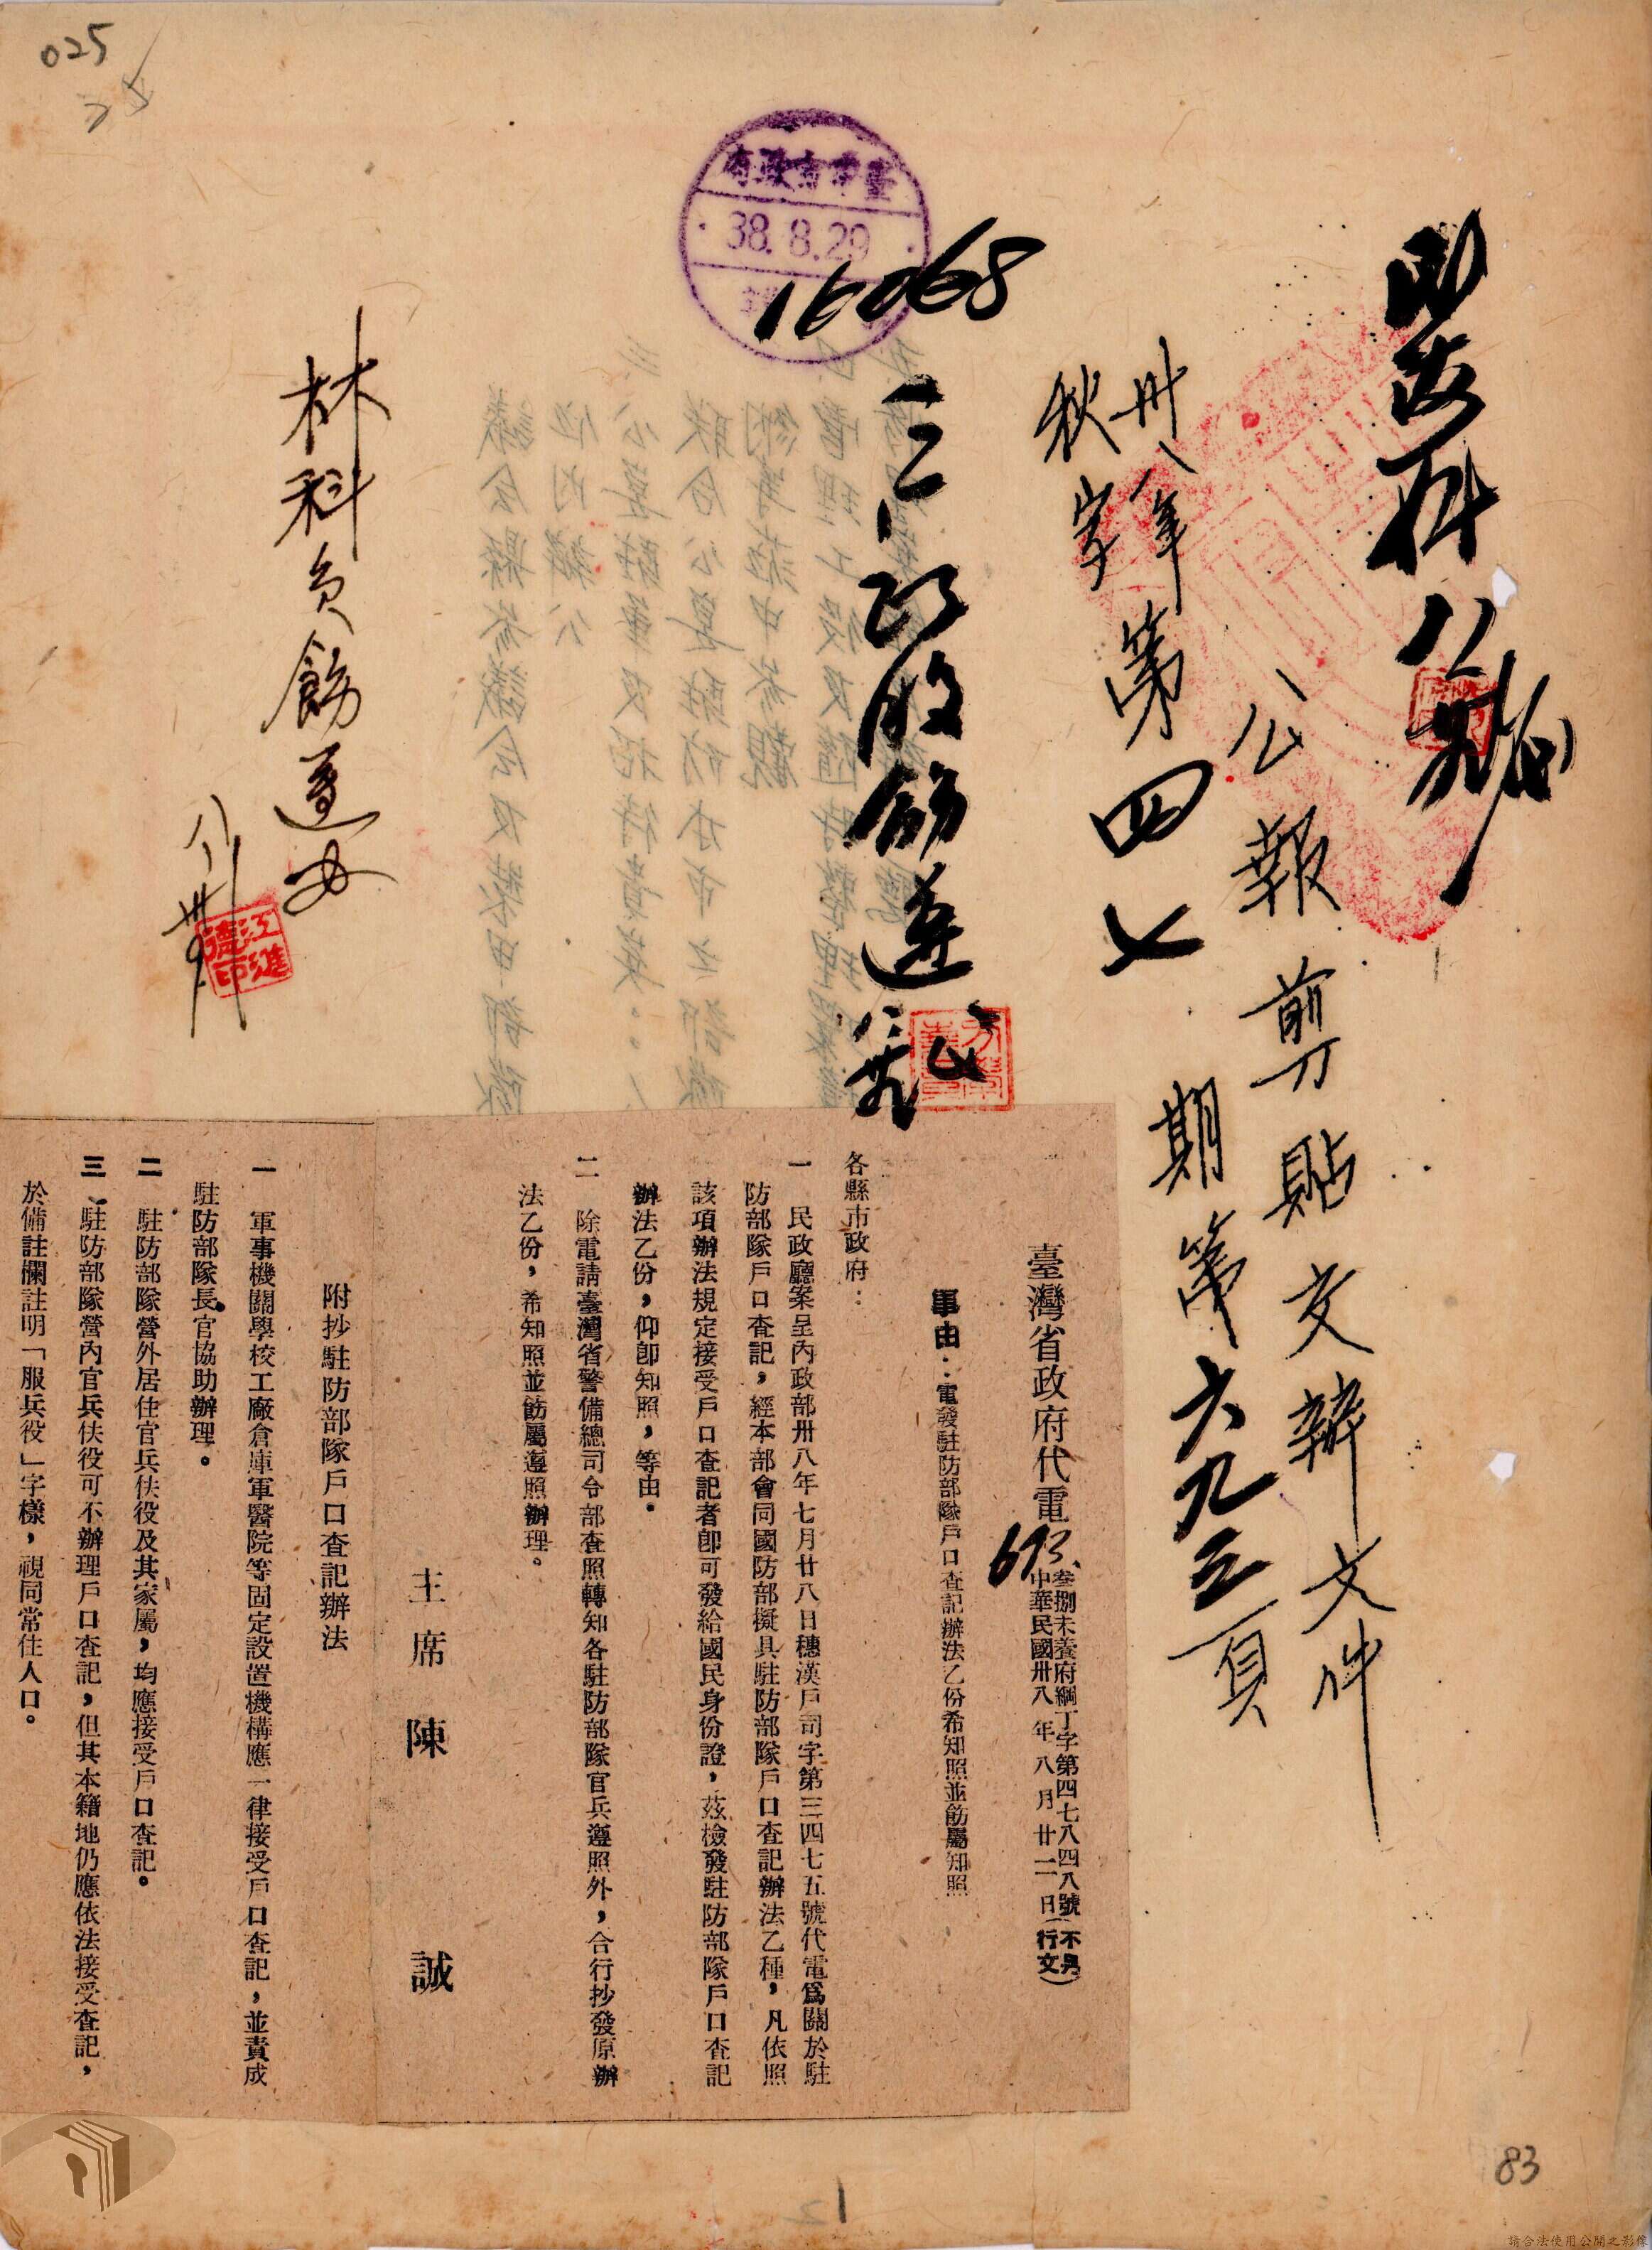 025
25
臺中市政府
38.8.29
16068
民政科
公報剪貼交辦文件
卅八年
秋字
第四七
期第六九三頁
飭遵
林科員飭遵
江進德印
臺灣省政府代電
693
叁捌未養府綱丁字第四七八四八號(不另
中華民國卅八年八月廿二日行文)
事由:電發駐防部隊戶口查記辦法乙份希知照並飭屬知照
各縣市政府:
一 民政廳案呈內政部卅八年七月廿八日穗漢戶司字第三四七五號代電爲關於駐
防部隊戶口查記,經本部會同國防部擬具駐防部隊戶口查記辦法乙種,凡依照
該項辦法規定接受戶口查記者卽可發給國民身份證,茲檢發駐防部隊戶口查記
辦法乙份,仰卽知照,等由。
二 除電請臺灣省警備總司令部查照轉知各駐防部隊官兵遵照外,合行抄發原辦
法乙份,希知照並飭屬遵照辦理。
主席 陳 誠
附抄駐防部隊戶口查記辦法
一 軍事機關學校工廠倉庫軍醫院等固定設置機構應一律接受戶口查記,並責成
駐防部隊長官協助辦理。
二 駐防部隊營外居住官兵伕役及其家屬,均應接受戶口查記。
三 駐防部隊營內官兵伕役可不辦理戶口查記,但其本籍地仍應依法接受查記,
於備註欄註明「服兵役」字樣,視同常住人口。
83
請合法使用公開之影像